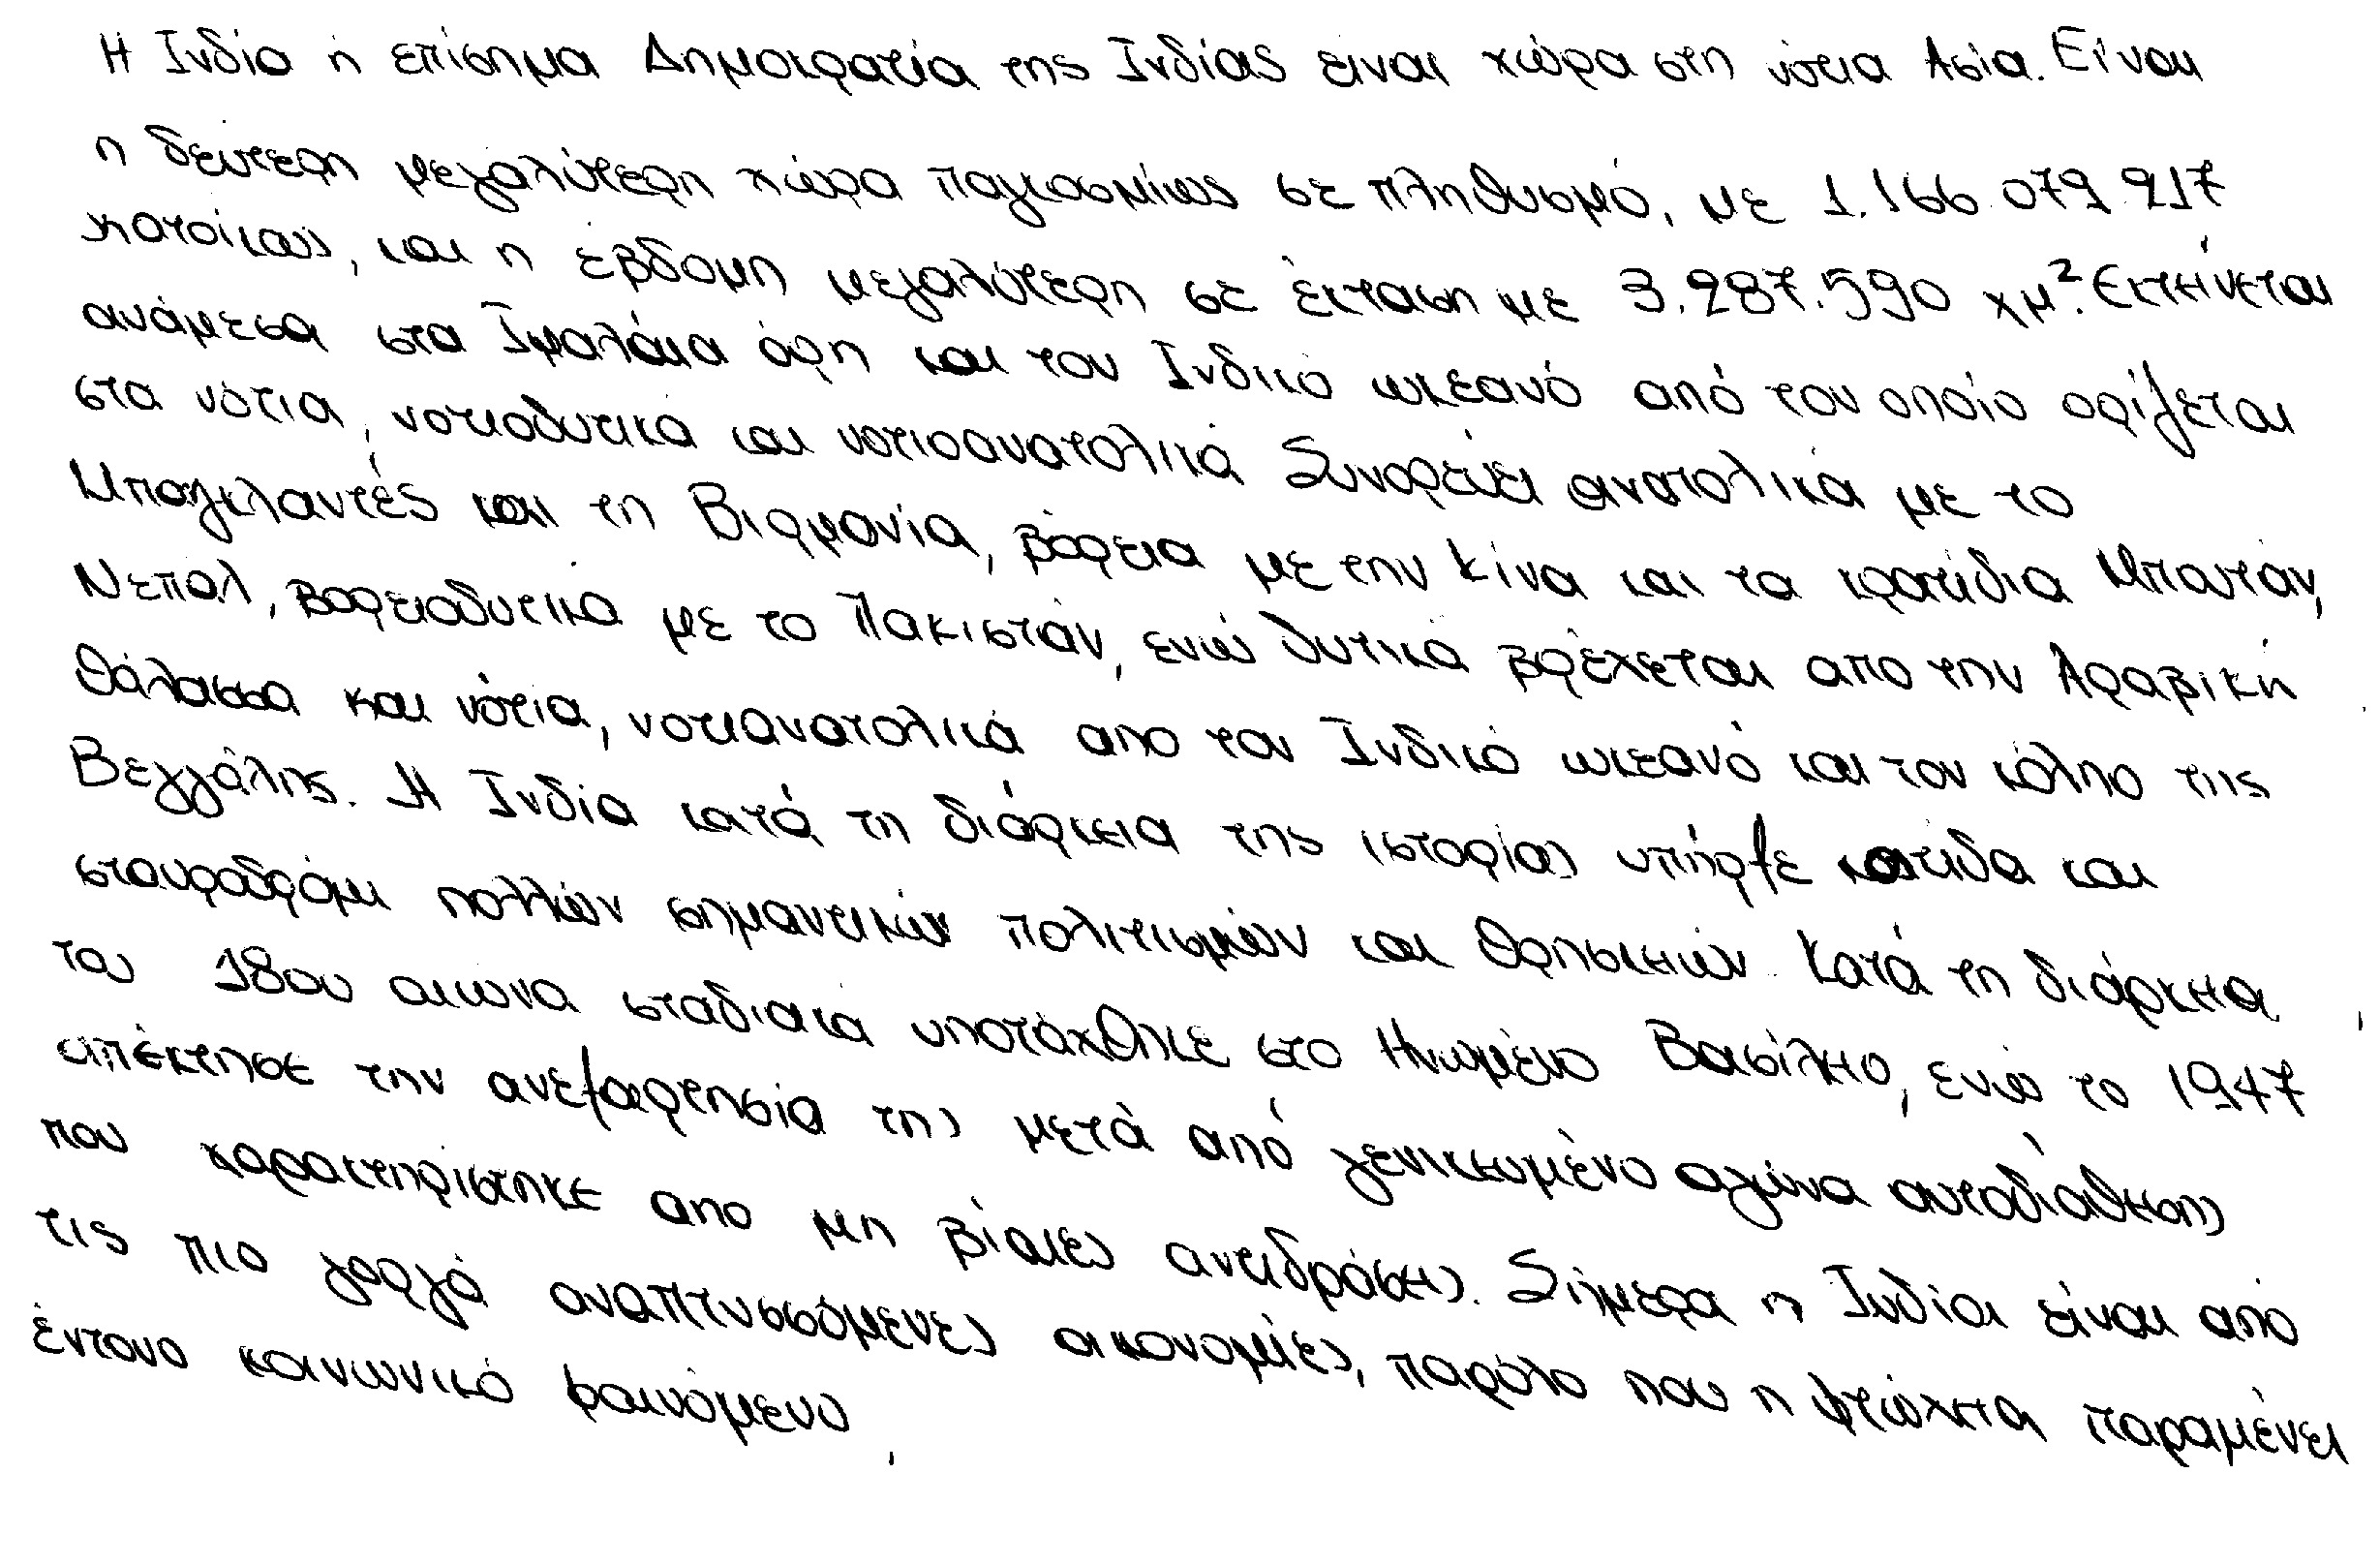 Η Ινδία ή επίσημα Δημοκρατία της Ινδίας είναι χώρα στη νότια Ασία. Είναι
η δεύτερη μεγαλύτερη χώρα παγκοσμίως σε πληθυσμό, με 1.166.079.217
κατοίκους, και η έβδομη μεγαλύτερη σε έκταση με 3.287.590 χμ². Εκτείνεται
ανάμεσα στα Ιμαλάια όρη και τον Ινδικό ωκεανό από τον οποίο ορίζεται
στα νότια, νοτιοδυτικά και νοτιοανατολικά Συνορεύει ανατολικά με το
Μπαγκλαντές και τη Βιρμανία, βόρεια με την Κίνα και τα κρατίδια Μπουτάν,
Νεπάλ, βορειοδυτικά με το Πακιστάν, ενώ δυτικά βρέχεται απο την Αραβική
θάλασσα και νότια, νοτιανατολικά απο τον Ινδικό ωκεανό και τον κόλπο της
Βεγγάλης. Η Ινδία κατά τη διάρκεια της ιστορίας υπήρξε κοιτίδα και
σταυροδρόμι πολλών σημαντικών πολιτισμών και θρησκειών. Κατά τη διάρκεια
του 18ου αιωνα σταδιακά υποτάχθηκε στο Ηνωμένο Βασίλειο, ενώ το 1947
απέκτησε την ανεξαρτησία της μετά από γενικευμένο αγώνα αυτοδιάθεσης
που χαρακτηρίστηκε απο μη βίαιες αντιδράσεις. Σήμερα η Ινδία είναι από
τις πιο γοργά αναπτυσσόμενες οικονομίες, παρόλο που η φτώχεια παραμένει
έντονο κοινωνικό φαινόμενο.